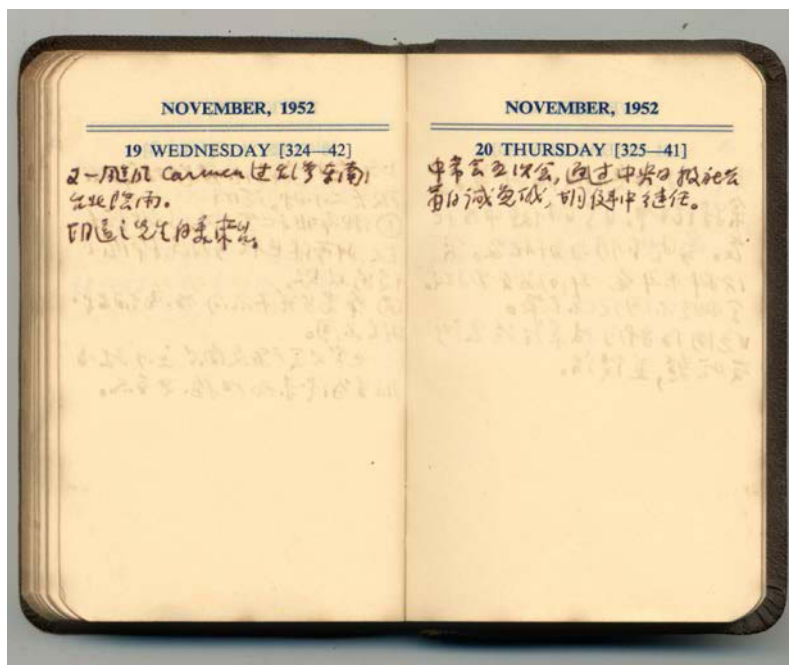 NOVEMBER, 1952
19 WEDNESDAY [324—42]
又一颱风 Carmen 过台湾东南,
台北阴雨。
胡适之先生自美来台。
NOVEMBER, 1952
20 THURSDAY [325—41]
中常会五次会,通过中央日报社公
萧自诚免职,胡健中继任。